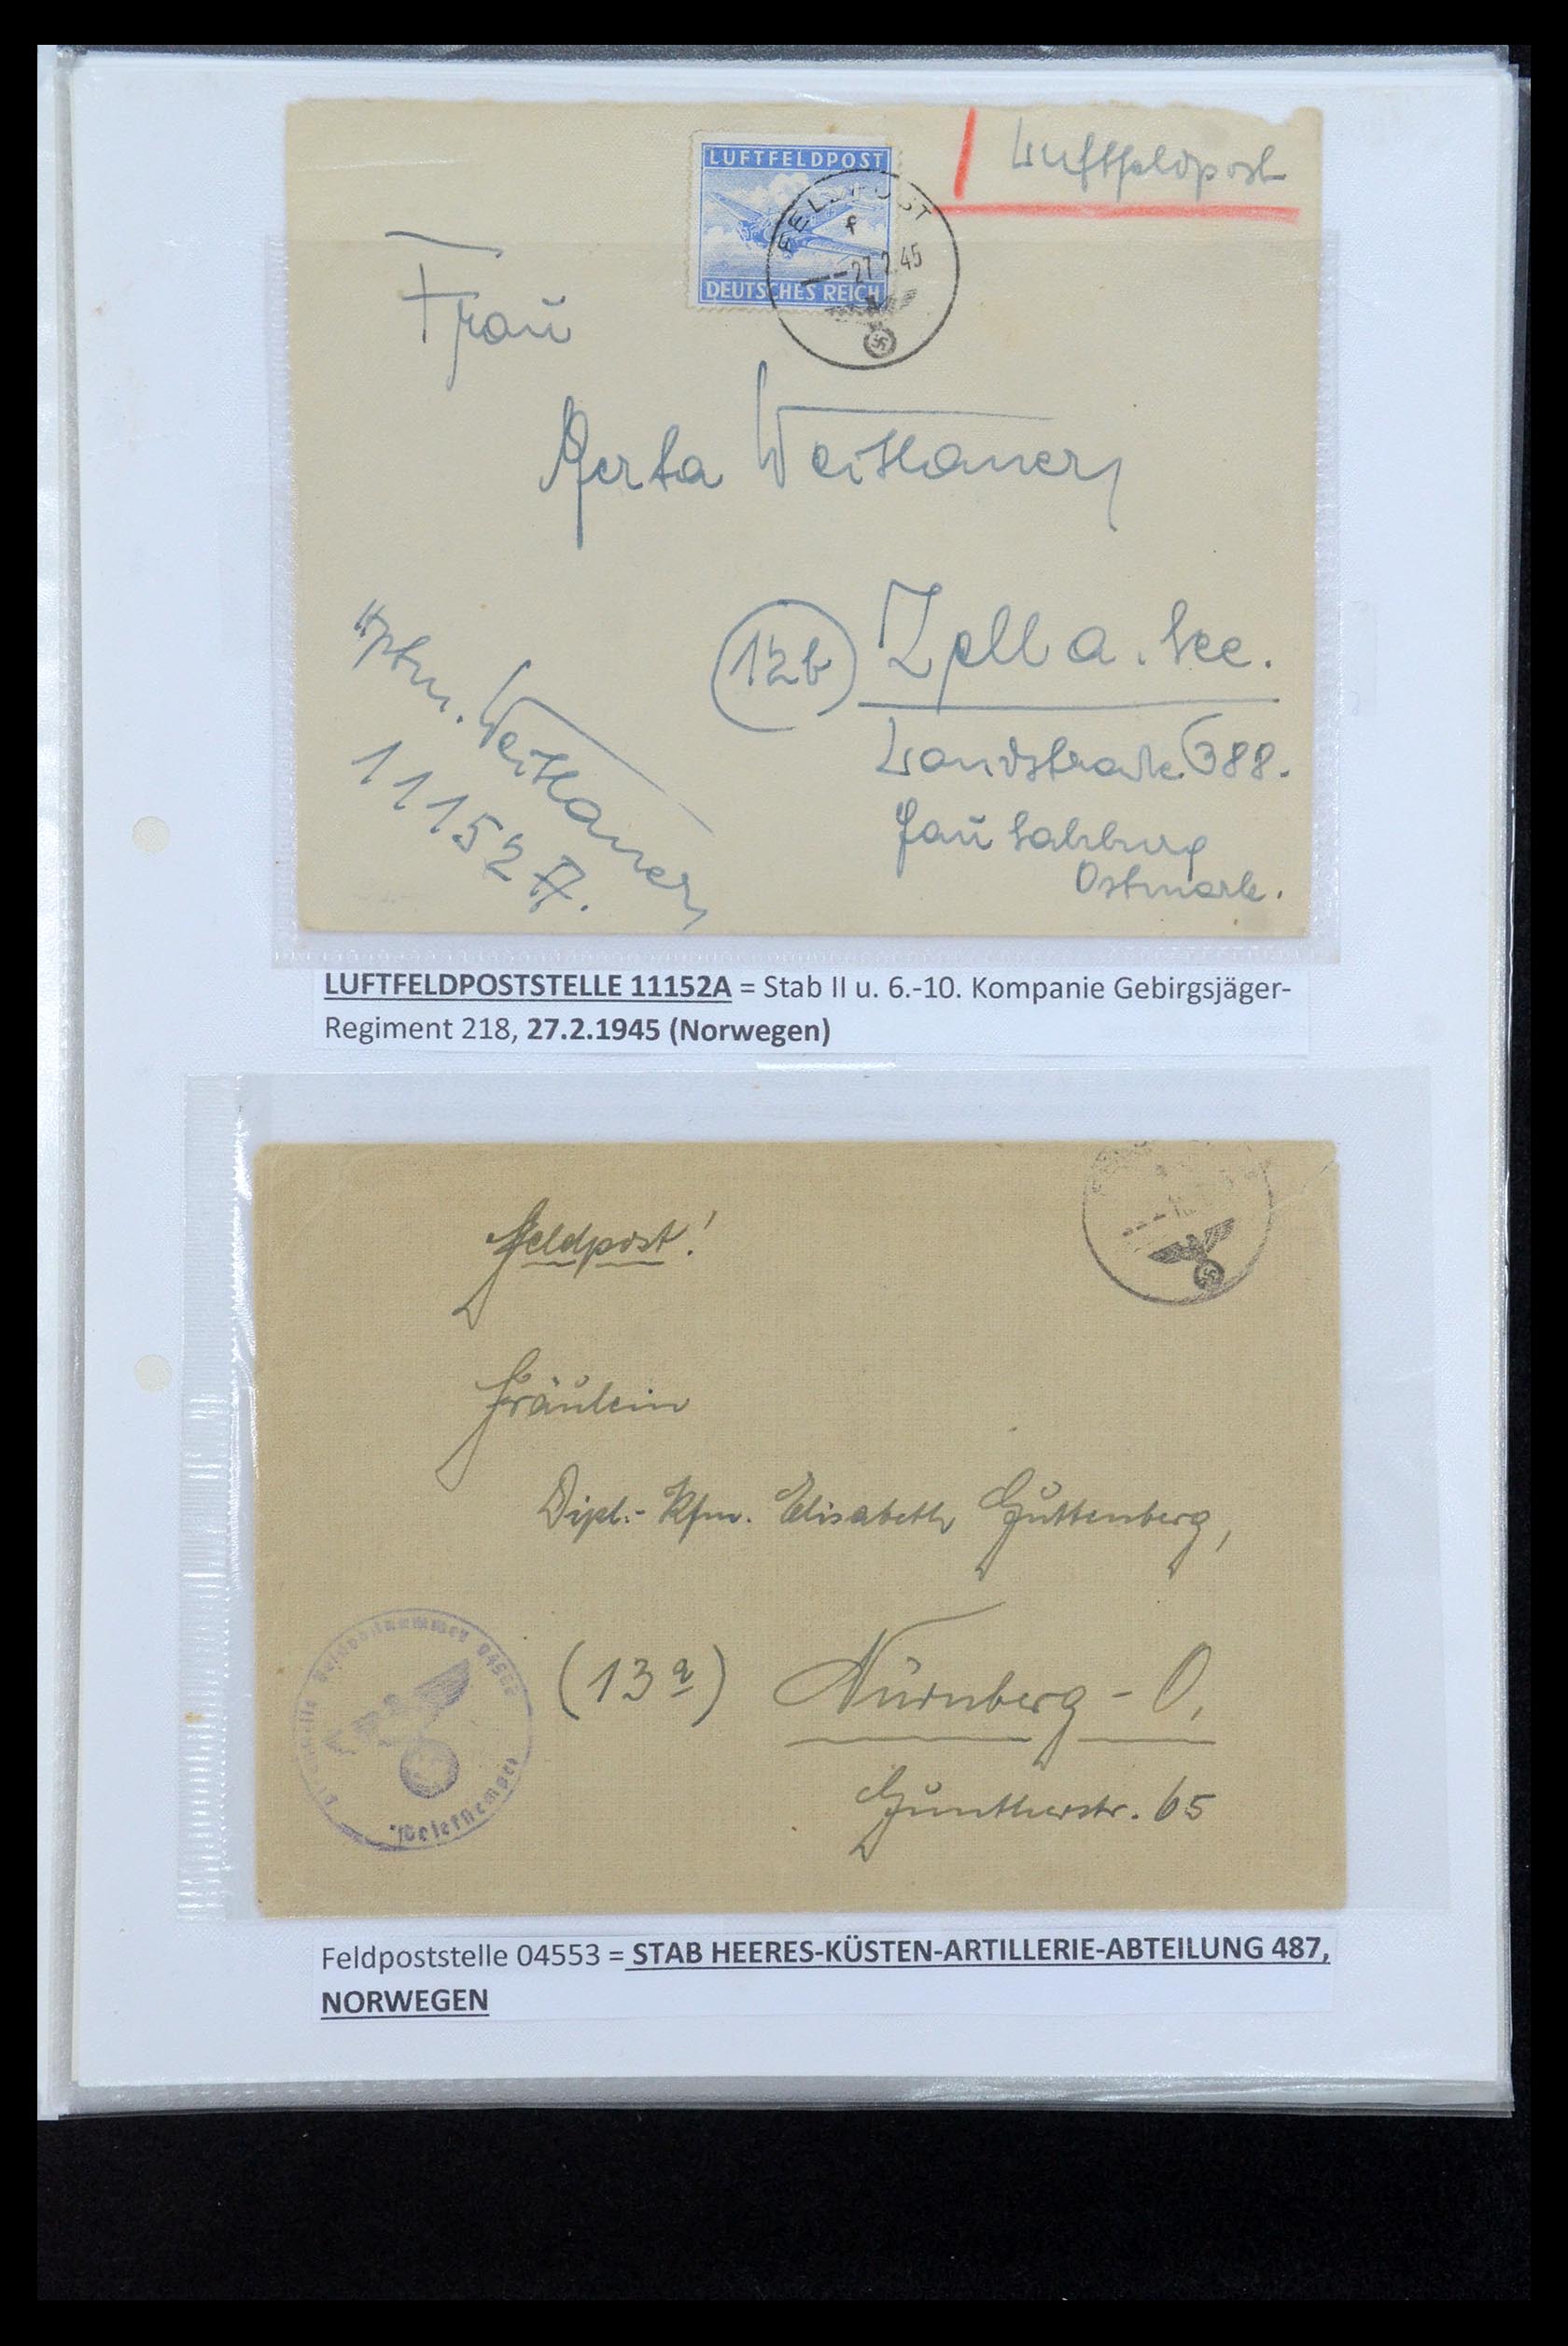 Luftfeldpost
LUFTFELDPOST
FELDPOST
f
27.2.45
DEUTSCHES REICH
Frau
Weithaner
12b Zell a. See.
Landstraße 388.
Gau Salzburg
Ostmark.
Hptm. Weithaner
11152 A.
LUFTFELDPOSTSTELLE 11152A = Stab II u. 6.-10. Kompanie Gebirgsjäger-
Regiment 218, 27.2.1945 (Norwegen)
Feldpost!
Fräulein
Dipl.-Kfm. Elisabeth Guttenberg,
(13a) Nürnberg - O.
Guntherstr. 65
Feldpostnummer
Briefstempel
Feldpoststelle 04553 = STAB HEERES-KÜSTEN-ARTILLERIE-ABTEILUNG 487,
NORWEGEN